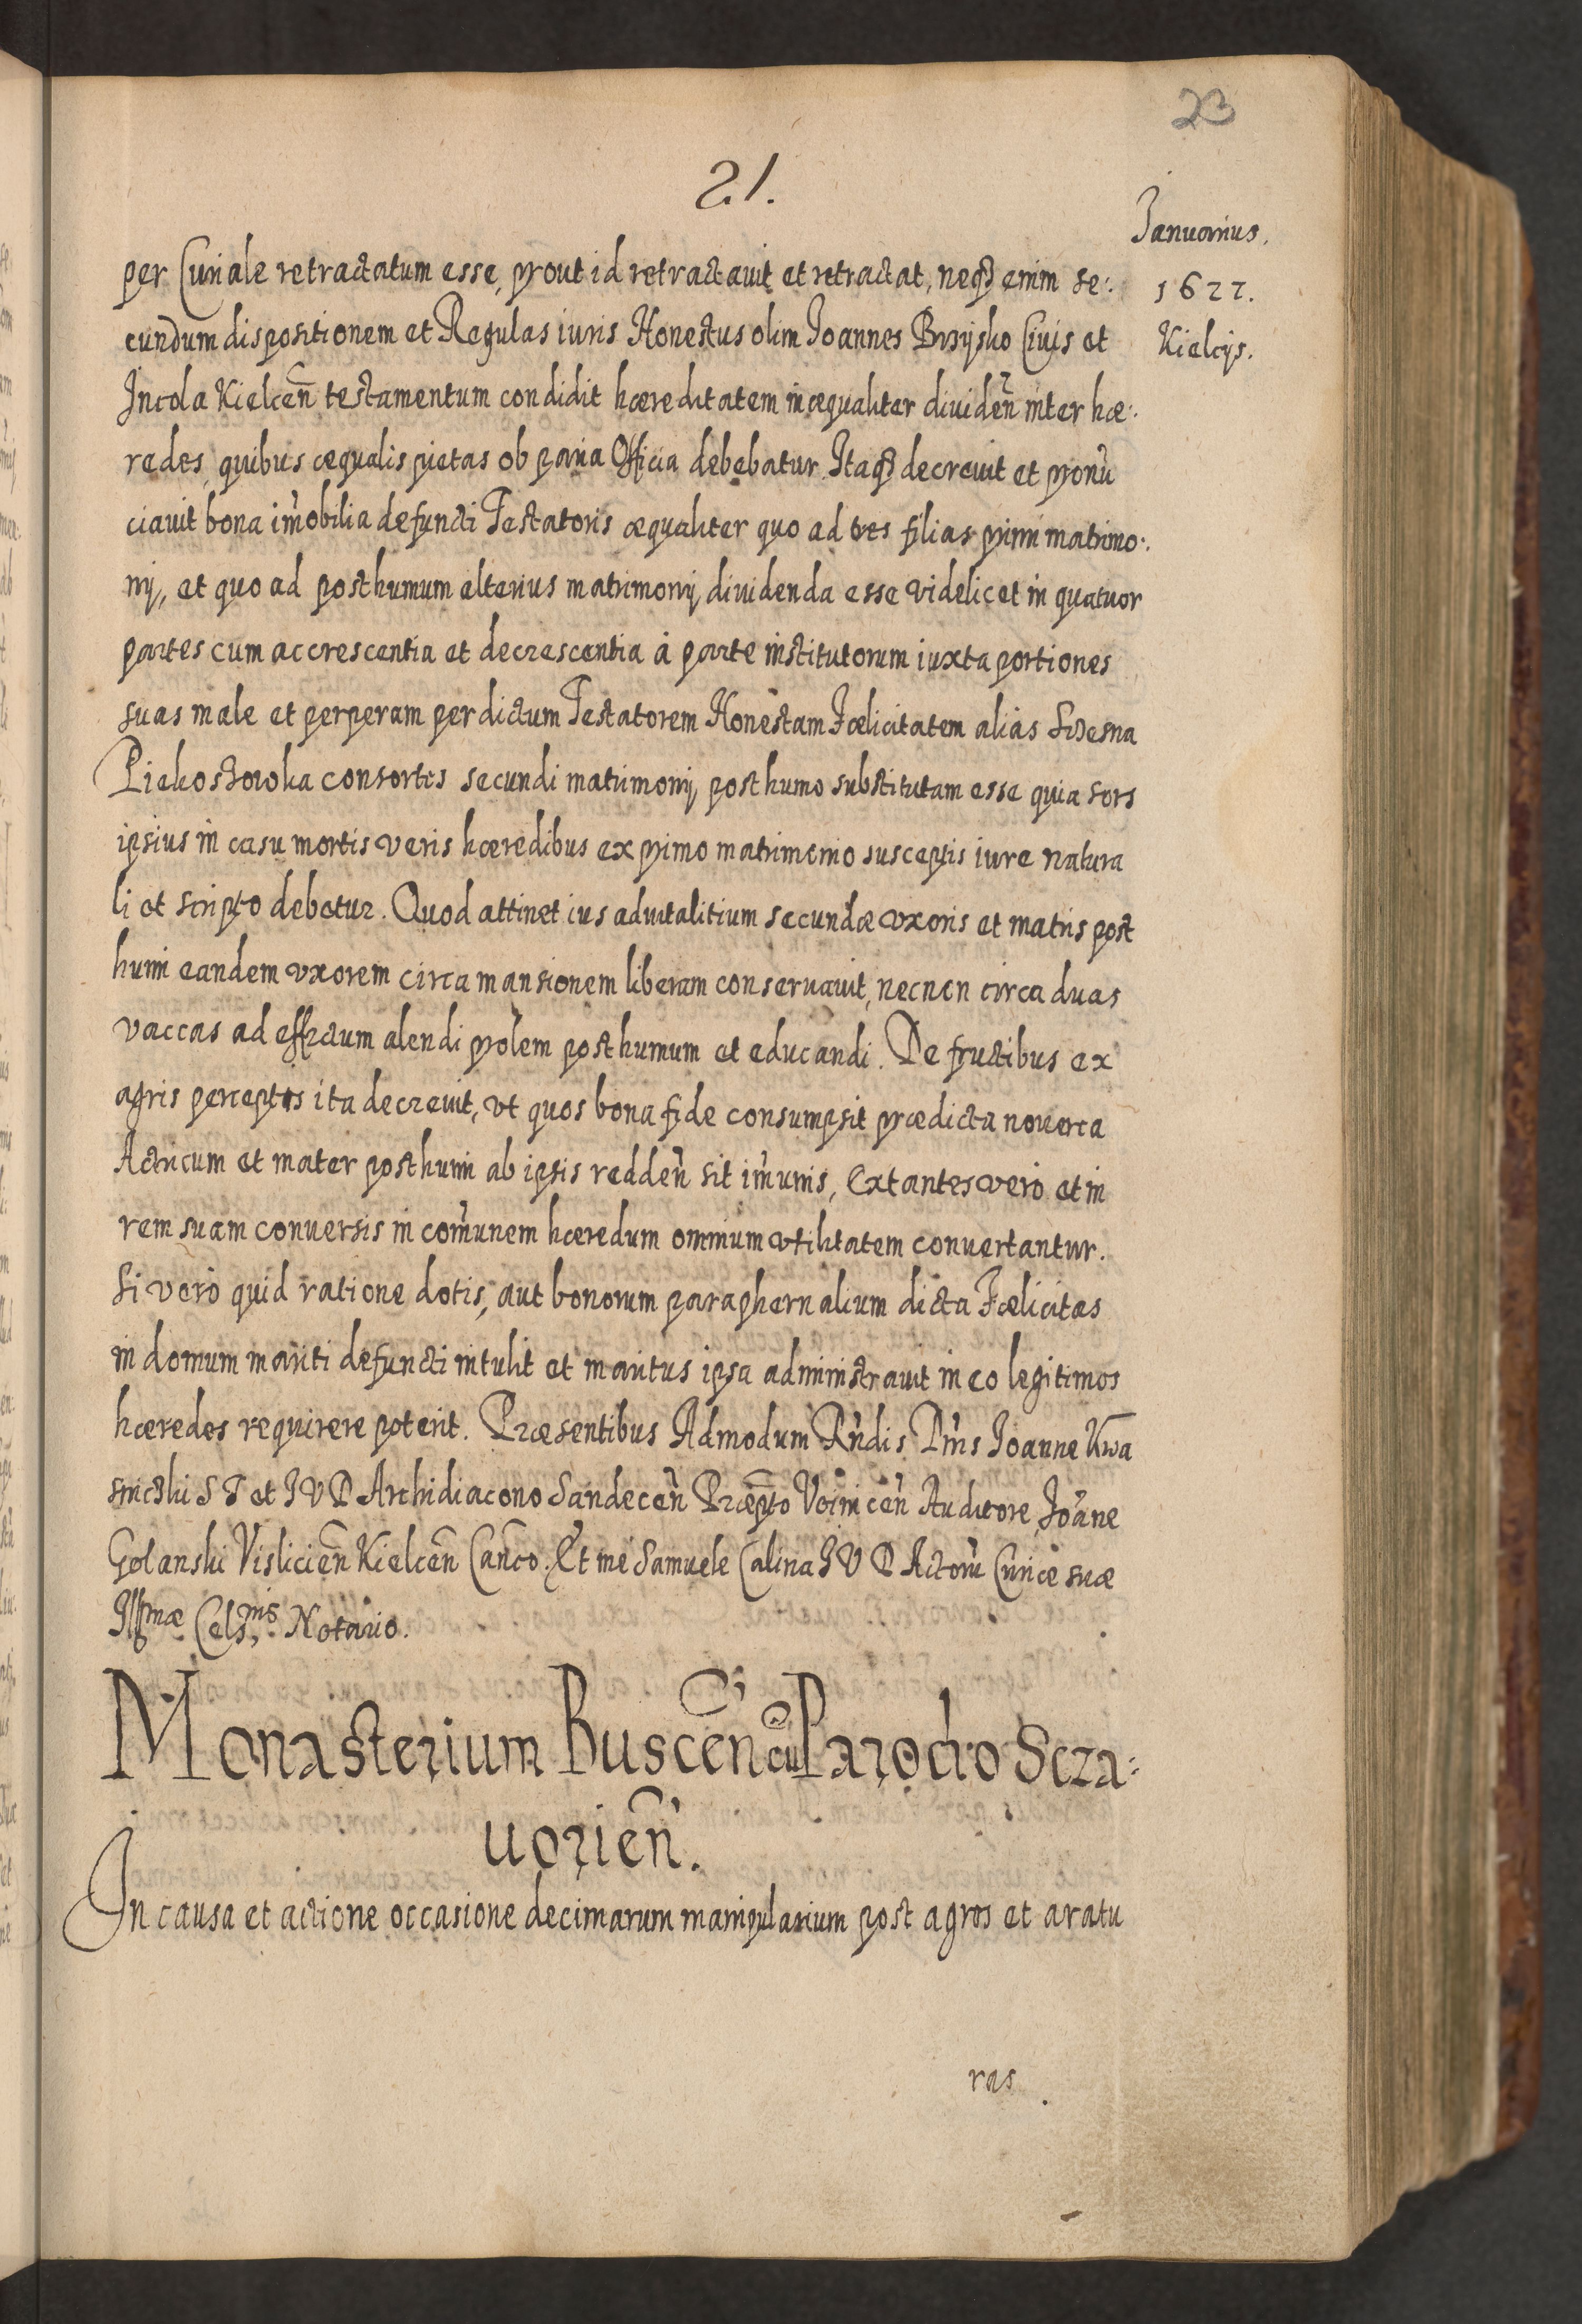 23
21.
Januarius.
1622.
Kielcijs.
per Curiale retractatum esse, prout id retractavit et retractat, neqꝫ enim se:
cundum dispositionem et Regulas iuris Honestus olim Joannes Civis et
Incola Kielceñ testamentum condidit hæreditatem inæqualiter divideñ inter hæ:
redes, quibus æqualis pietas ob paria Officia debebatur Itaqꝫ decrevit et pronũ
ciavit bona im̃obilia defuncti Testatoris æqualiter quo ad tres filias primi matrimo:
nij, et quo ad posthumum alterius matrimonij, dividenda esse videlicet in quatuor
partes cum accrescentia et decrescentia à parte institutorum iuxta portiones
suas male et perperam per dictum Testatorem Honestam Fœlicitatem alias Sczesna
Piekoszowska consortes secundi matrimonij posthumo substitutam esse quia sors
ipsius in casu mortis veris hæredibus ex primo matrimonio susceptis iure natura
li et scripto debetur. Quod attinet ius advitalitium secundæ uxoris et matris post
humi eandem vxorem circa mansionem liberam conservavit, necnon circa duas
vaccas ad effectum alendi prolem posthumum et educandi. De fructibus ex
agris perceptis ita decrevit, vt quos bona fide consumpsit prædicta noverca
Actricum et mater posthumi ab ipsis reddeñ sit im̃unis, Extantes vero et in
rem suam conversis in com̃unem hæredum omnium vtilitatem convertantur.
Si verò quid ratione dotis, aut bonorum paraphernalium dicta Fœlicitas
in domum mariti defuncti intulit et maritus ipsa administravit in eo legitimos
hæredes requirere poterit. Præsentibus Admodum Rñdis Dñis Joanne Kwa
S T et I V D Archidiacono Sandeceñ Præpto Voiniceñ Auditore, Joãne
Golanski Visliciẽn Kielceñ Cañco. Et me Samuele Calina I V D Actorũ Curiæ suæ
Illmæ Cels.nis Notario.
Monasterium Busceñ cũ Parocho Scza:
uorieñ.
In causa et actione occasione decimarum manipularium post agros et aratu
ras